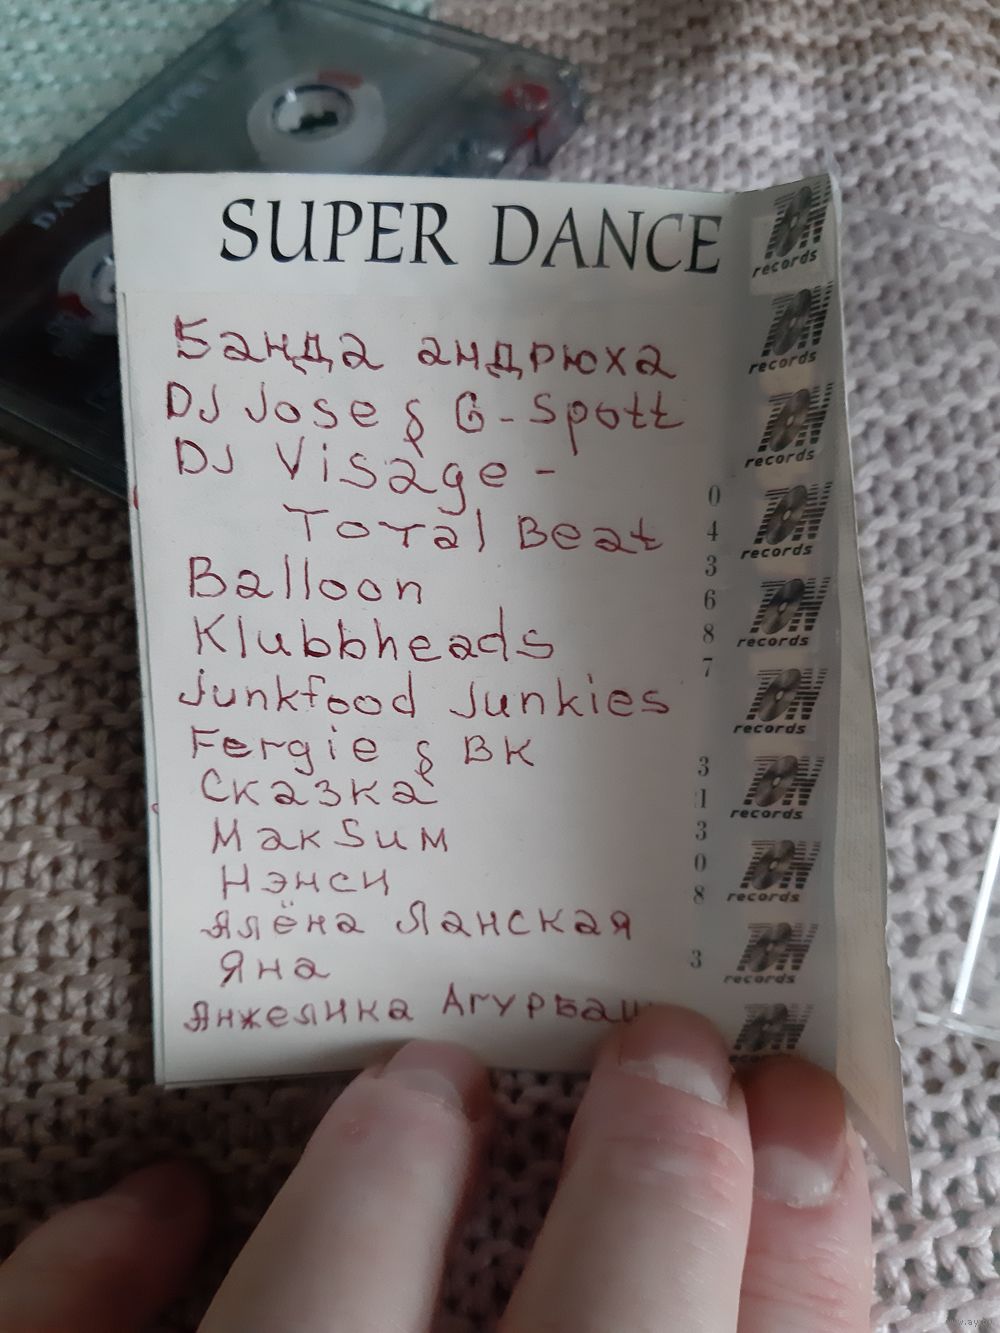 SUPER DANCE
Банда андрюха
DJ Jose & G-Spott
DJ Visage -
Total Beat
Balloon
Klubbheads
Junkfood Junkies
Fergie & BK
Сказка
МакSим
Нэнси
Алёна Ланская
Яна
Анжелика Агурбаш
0
4
3
6
8
7
3
1
3
0
8
3
records
records
records
records
records
records
records
records
records
records